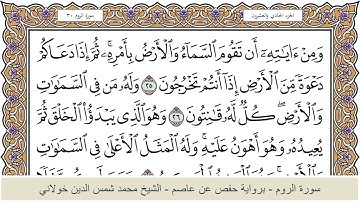 سورة الروم ٣٠
الجزء الحادي والعشرون
وَمِنْ ءَايَـٰتِهِۦٓ أَن تَقُومَ ٱلسَّمَآءُ وَٱلْأَرْضُ بِأَمْرِهِۦ ۚ ثُمَّ إِذَا دَعَاكُمْ
دَعْوَةً مِّنَ ٱلْأَرْضِ إِذَآ أَنتُمْ تَخْرُجُونَ ٢٥ وَلَهُۥ مَن فِى ٱلسَّمَـٰوَٰتِ
وَٱلْأَرْضِ ۖ كُلٌّ لَّهُۥ قَـٰنِتُونَ ٢٦ وَهُوَ ٱلَّذِى يَبْدَؤُا۟ ٱلْخَلْقَ ثُمَّ
يُعِيدُهُۥ وَهُوَ أَهْوَنُ عَلَيْهِ ۚ وَلَهُ ٱلْمَثَلُ ٱلْأَعْلَىٰ فِى ٱلسَّمَـٰوَٰتِ
سورة الروم - برواية حفص عن عاصم - الشيخ محمد شمس الدين خولاني